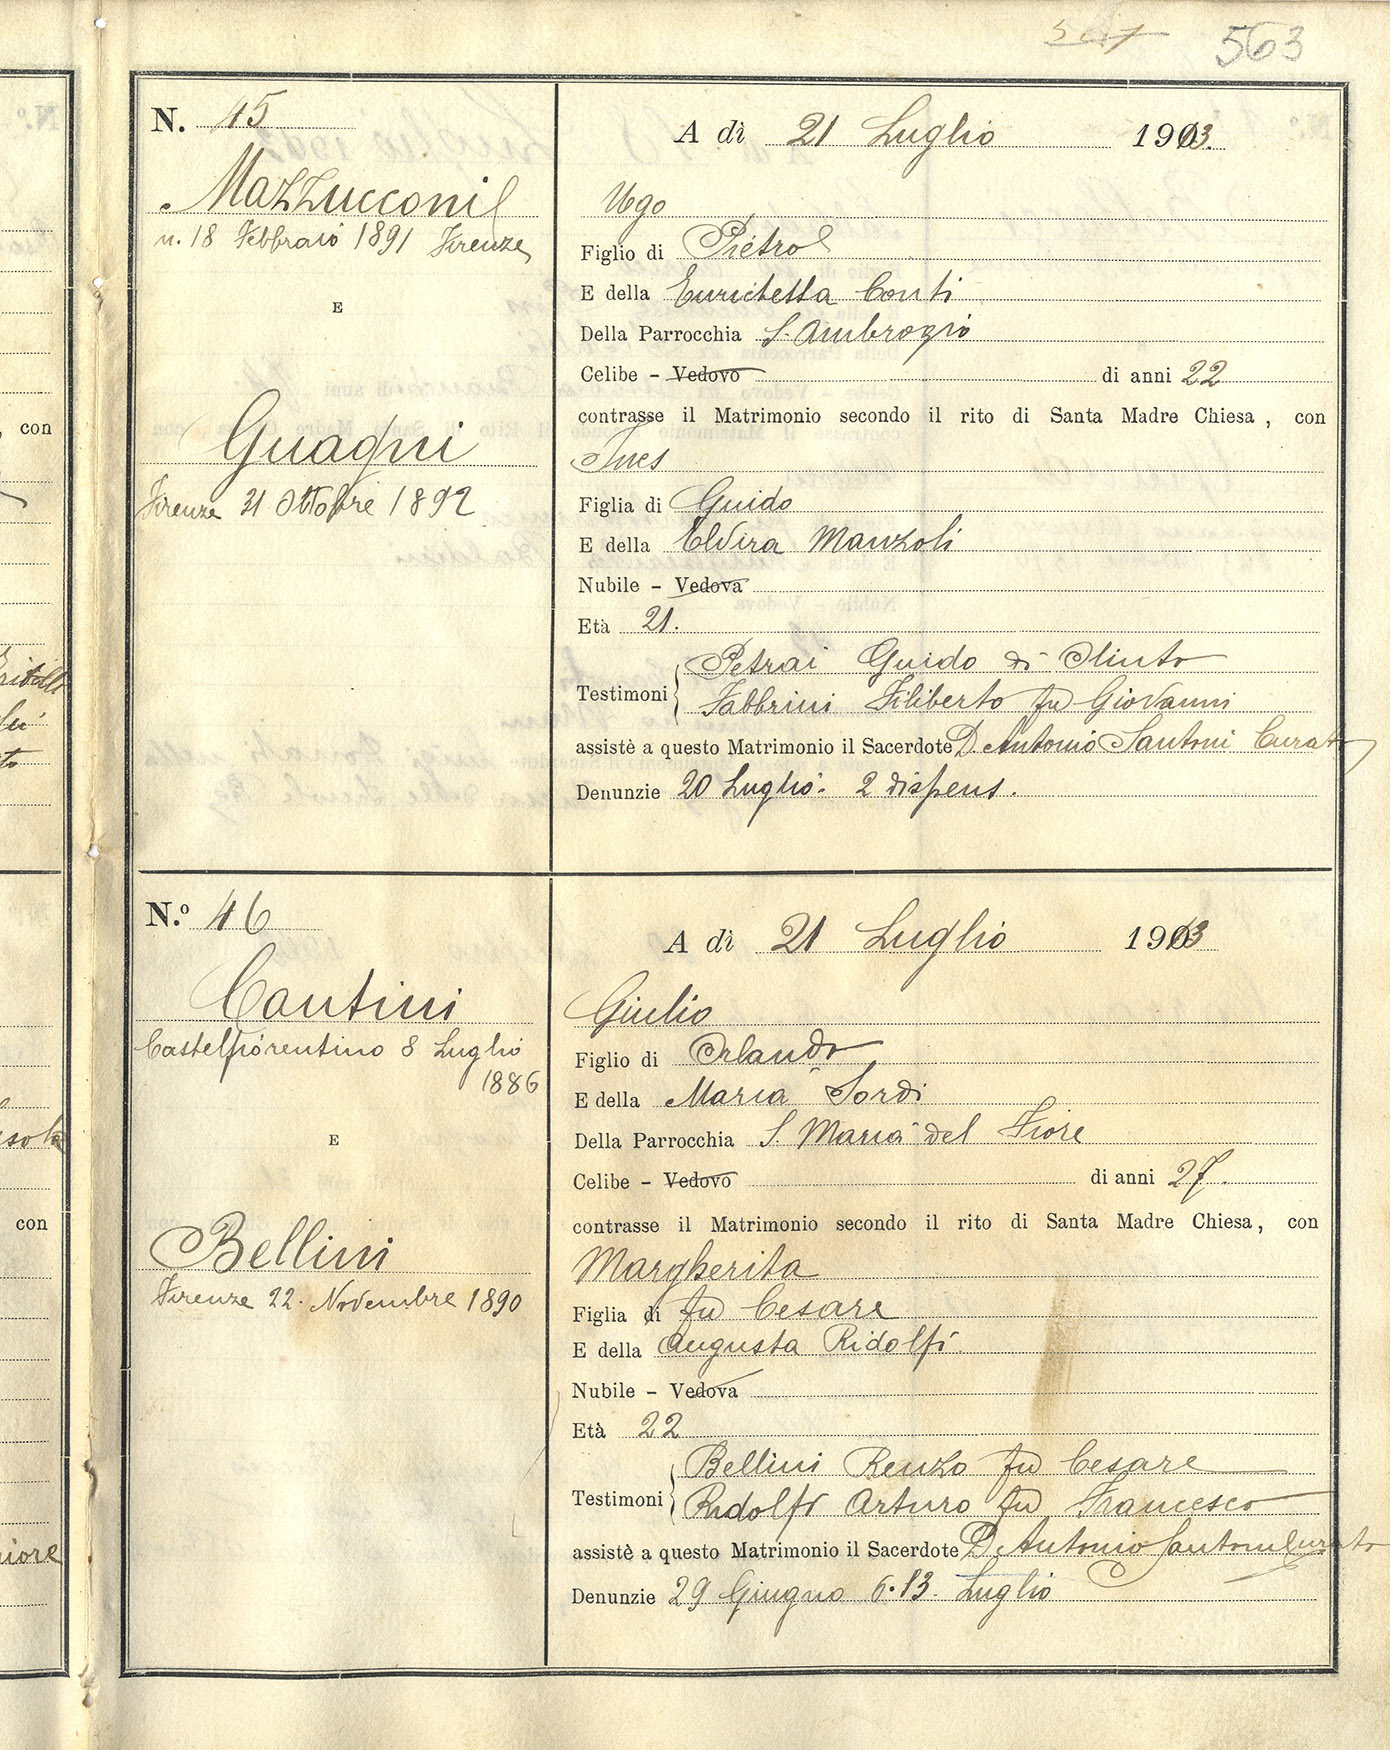 563
N. 45
Mazzucconi
n. 18 Febbraio 1891 Firenze
E
Guagni
Firenze 31 Ottobre 1892
A dì 21 Luglio 1913.
Ugo
Figlio di Pietro
E della Enrichetta Conti
Della Parrocchia S. Ambrogio
Celibe - Vedovo di anni 22
contrasse il Matrimonio secondo il rito di Santa Madre Chiesa, con
Ines
Figlia di Guido
E della Elvira Manzoli
Nubile - Vedova
Età 21.
Petrai Guido di Olinto
Testimoni
Fabbrini Filiberto fu Giovanni
assistè a questo Matrimonio il Sacerdote D. Antonio Santoni Curato
Denunzie 20 Luglio. 2 dispens.
N.º 46
Cantini
Castelfiorentino 8 Luglio
1886
E
Bellini
Firenze 22. Novembre 1890
A dì 21 Luglio 1913
Giulio
Figlio di Orlando
E della Maria Sordi
Della Parrocchia S. Maria del Fiore
Celibe - Vedovo di anni 27.
contrasse il Matrimonio secondo il rito di Santa Madre Chiesa, con
Margherita
Figlia di fu Cesare
E della Augusta Ridolfi
Nubile - Vedova
Età 22
Bellini Renzo fu Cesare
Testimoni
Ridolfi Arturo fu Francesco
assistè a questo Matrimonio il Sacerdote D. Antonio Santoni Curato
Denunzie 29 Giugno 6. 13. Luglio
con
con